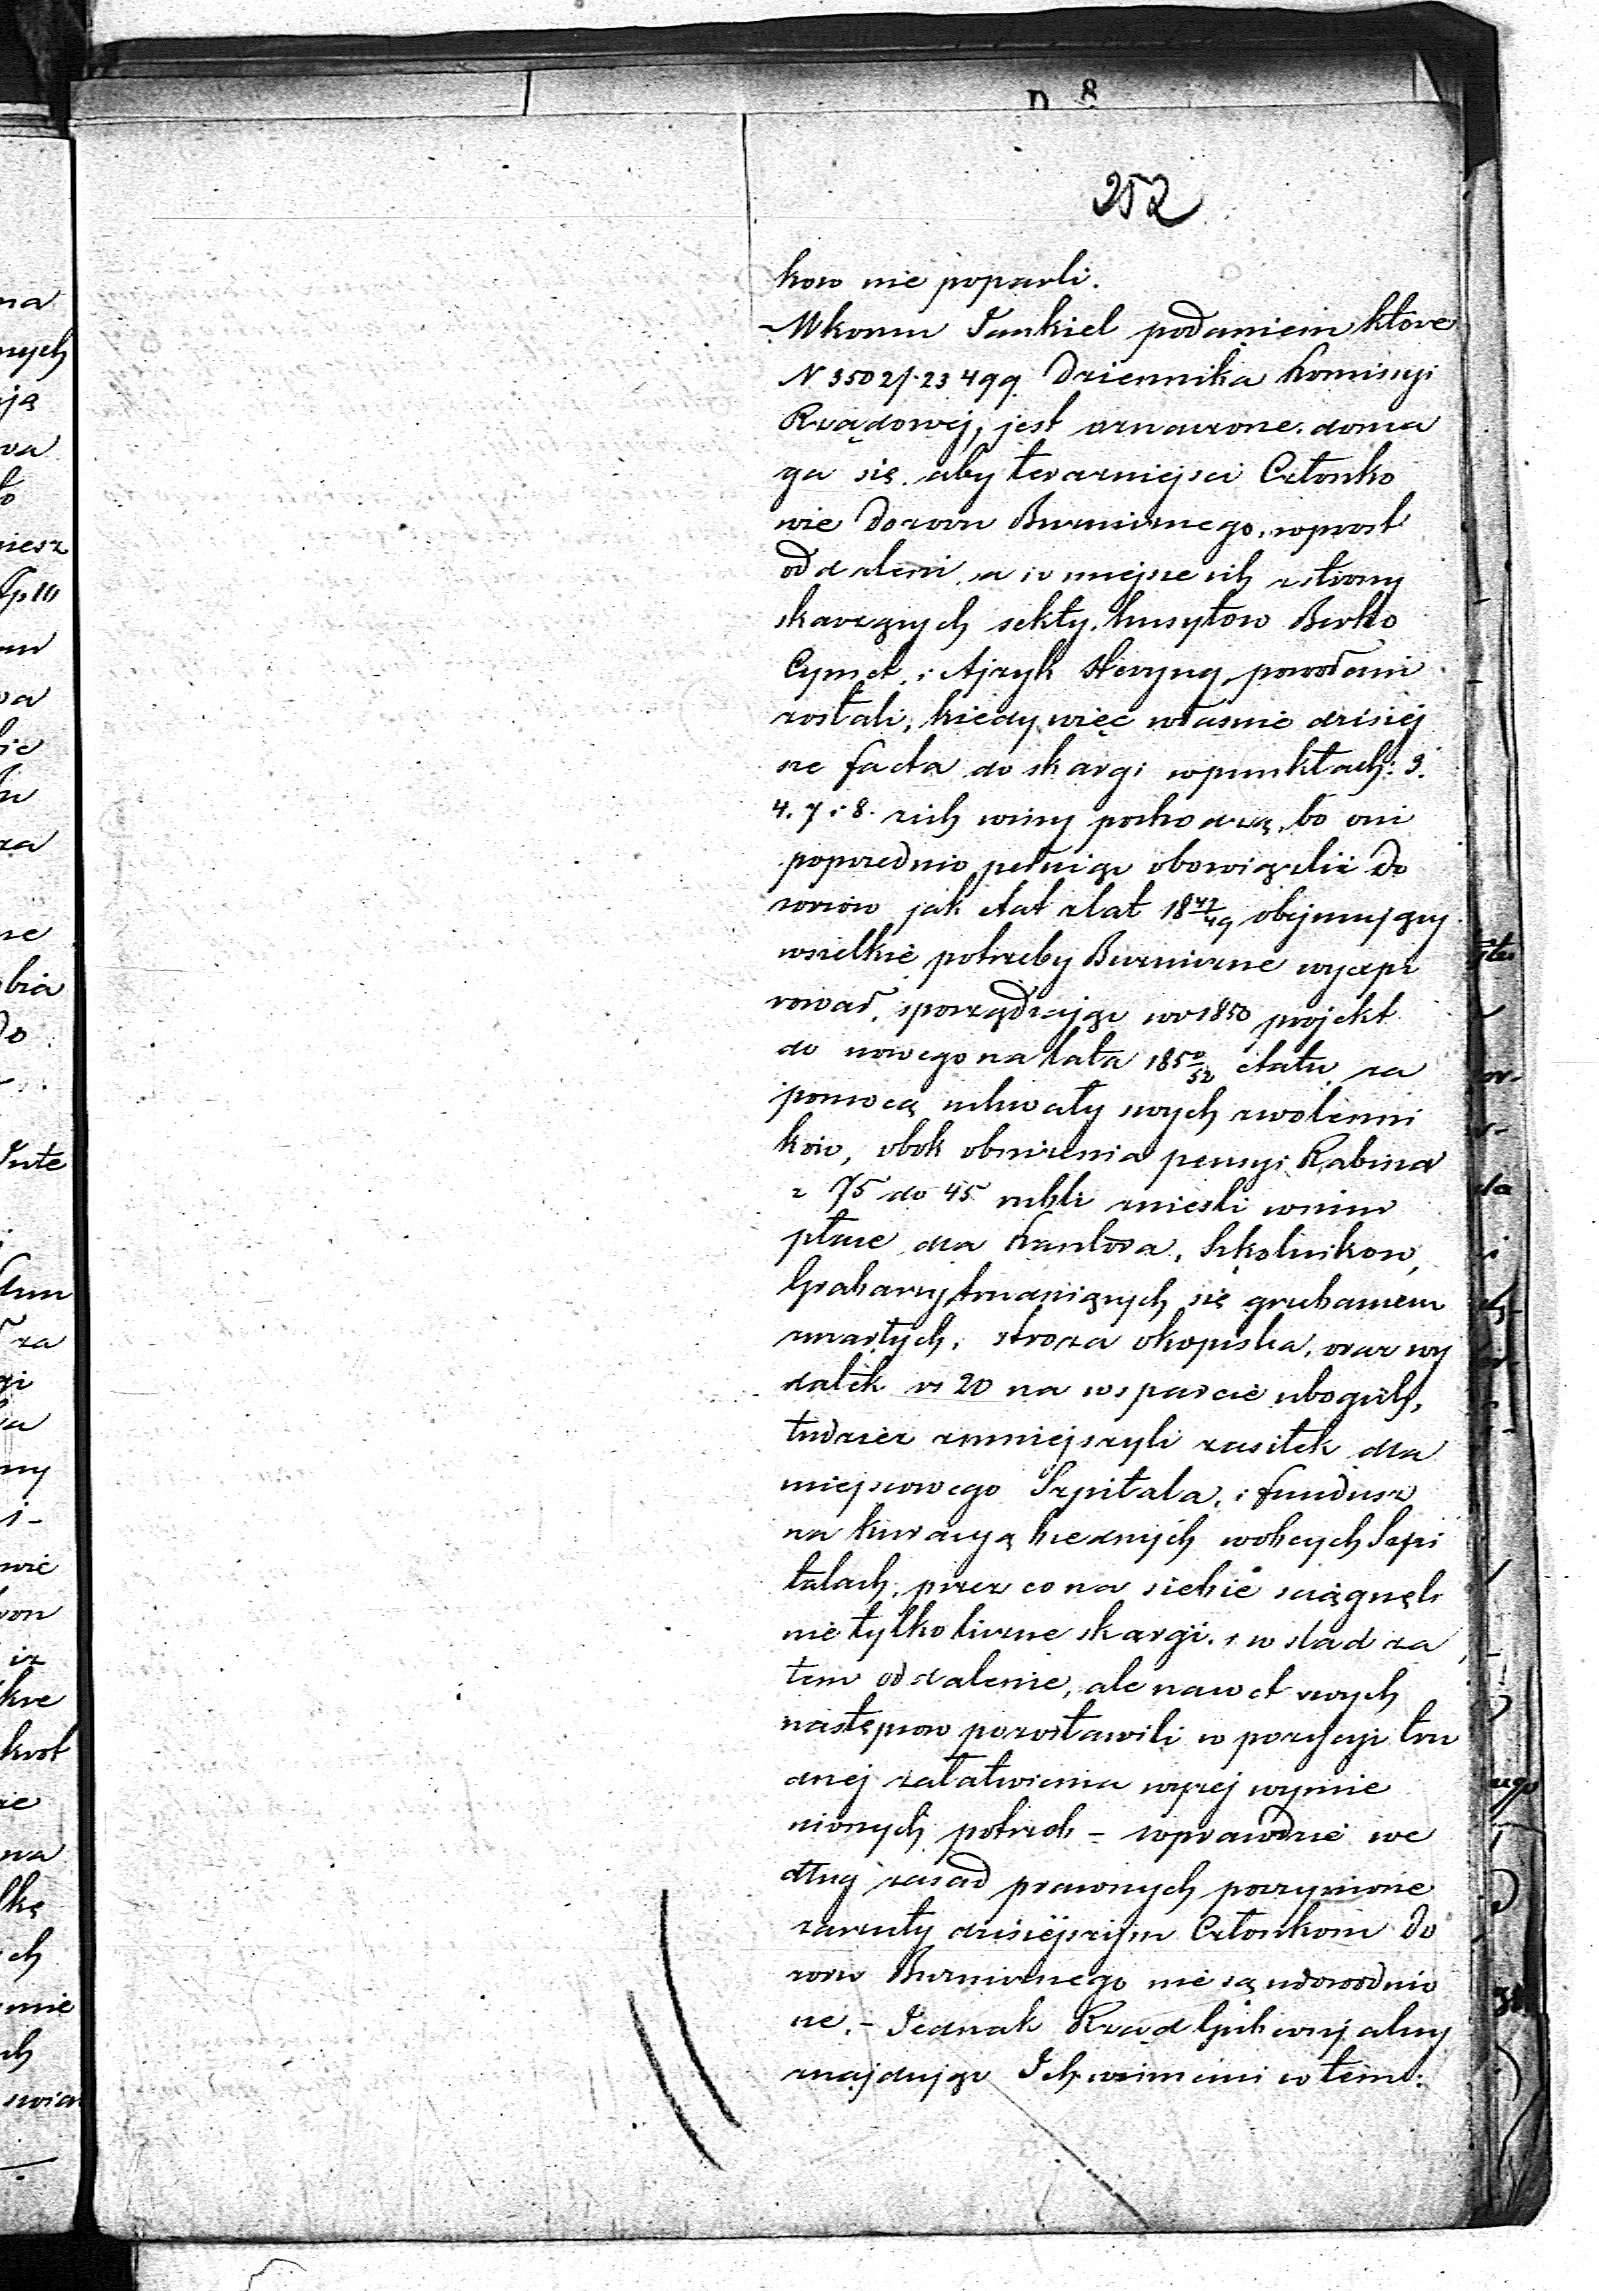 252
kow nie poparli.
Wkoncu Jankiel podaniem które
N 3502/23499 Dziennika Kommissyi
Rządowéj, jest oznaczone, doma
ga się aby terazniejsci Członko
wie Dozoru Bużniczego, wprost
oddaleni, a w miejsce ich z strony
skarżących sekty husytów Berko
Cymet, i Ajzyk Heryng, powołani
zostali, kiedy więc własnie dzisiej
sze facta do skargi w punktach: 3.
4. 7 i 8. z ich winy pochodzą, bo oni
poprzednio pełniąc obowiązki Do
zorców jak etat z lat 18 47/49 obejmujący
wszelkie potrzeby Bużnicze wyexpi
rował, sporządzając w r 1850 projekt
do nowego na lata 18 50/52 etatu, za
pomocą uchwały swych zwolenni
ków, obok obniżenia pensyi Rabina
z 75 do 45 rubli znieśli w nim
płace dla Kantora, Szkolników,
Grabarzy trudniących się grzebaniem
zmarłych, stroza okopiska, oraz wy
datek rs 20 na wsparcie ubogich,
tudzież zmniejszyli zasiłek dla
miejscowego Szpitala, i fundusz
na kuracyą biednych w obcych Szpi
talach, przez co na siebie sciągnęli
nie tylko liczne skargi, i w slad za
tem oddalenie, ale nawet swych
następców pozostawili w pozycyi tru
dnej załatwienia wyzej wymie
nionych potrzeb – wprawdzie we
dług zasad prawnych poczynione
zarzuty dzisiéjszym Członkom Do
zoru Bużniczego nie są udowodnio
ne. – Jednak Rząd Gubernijalny
znajdując Ich winnemi w tem: